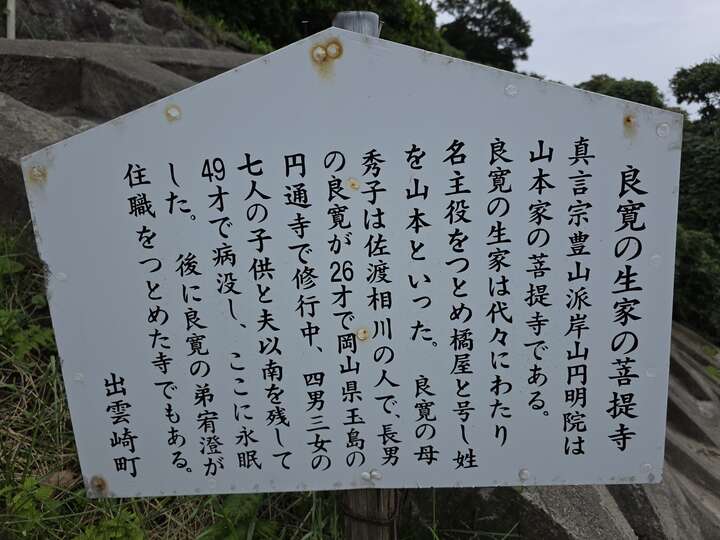 良寛の生家の菩提寺
真言宗豊山派岸山円明院は
山本家の菩提寺である。
良寛の生家は代々にわたり
名主役をつとめ橘屋と号し姓
を山本といった。 良寛の母
秀子は佐渡相川の人で、長男
の良寛が26才で岡山県玉島の
円通寺で修行中、四男三女の
七人の子供と夫以南を残して
49才で病没し、ここに永眠
した。 後に良寛の弟宥澄が
住職をつとめた寺でもある。
出雲崎町